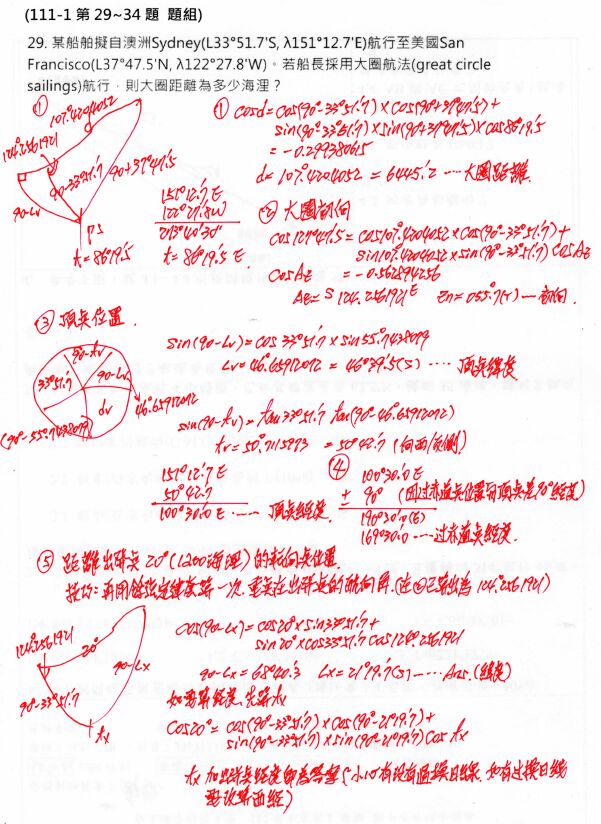 (111-1 第 29~34 題 題組)
29. 某船舶擬自澳洲Sydney(L33°51.7'S, λ151°12.7'E)航行至美國San
Francisco(L37°47.5'N, λ122°27.8'W)。若船長採用大圈航法(great circle
sailings)航行,則大圈距離為多少海浬?
①
107.°4204052
124.°2561921
90-33°51.'7
90+37°47.'5
90-Lv
PS
t=86°19.'5
151°12.'7E
122°27.'8W
273°40'30"
t=86°19.'5 E
① cosd=cos(90°-33°51.'7)×cos(90+37°47.'5)+
sin(90°-33°51.'7)×sin(90+37°47.'5)×cos86°19.'5
=-0.29938065
d=107.°4204052=6445.'2 ····大圈距離
② 大圈初向
cos127°47.'5=cos107.°4204052×cos(90°-33°51.'7)+
sin107.°4204052×sin(90°-33°51.'7)cosAz
cosAz=-0.562894256
Az=S 124.°2561921E Zn=055.°7(T)····初向.
③ 頂點位置.
90-tv
33°51.'7
90-Lv
dv
46.°65912072
(90-55.°7438079)
sin(90-Lv)=cos33°51.'7×sin55.°7438079
Lv=46.°65912072=46°39.'5(S)····頂點緯度
sin(90-tv)=tan33°51.'7 tan(90-46.°65912072)
tv=50.°7115973=50°42.'7(向西/反側)
151°12.'7E
50°42.'7
100°30.'0E ····頂點經度.
④
100°30.'0E
+ 90° (因過赤道點位置與頂點差90°經度)
190°30.'0(E)
169°30.'0····過赤道點經度.
⑤ 距離出發點20°(1200海浬)的轉向點位置
技巧:再用餘弦定律演算一次.重點在出發點的航向角.(在②已算出為124.°2561921)
124.°2561921
20°
90-33°51.'7
90-Lx
tx
cos(90-Lx)=cos20°×sin33°51.'7+
sin20°×cos33°51.'7cos124.°2561921
90-Lx=68°40.'3 Lx=21°19.'7(S)····Ans.(緯度)
如要算經度.先算tx
cos20°=cos(90°-33°51.'7)×cos(90°-21°19.'7)+
sin(90°-33°51.'7)×sin(90°-21°19.'7)cos tx
tx加出發點經度即為答案(小心有沒有過換日線.如有過換日線
要改算西經)